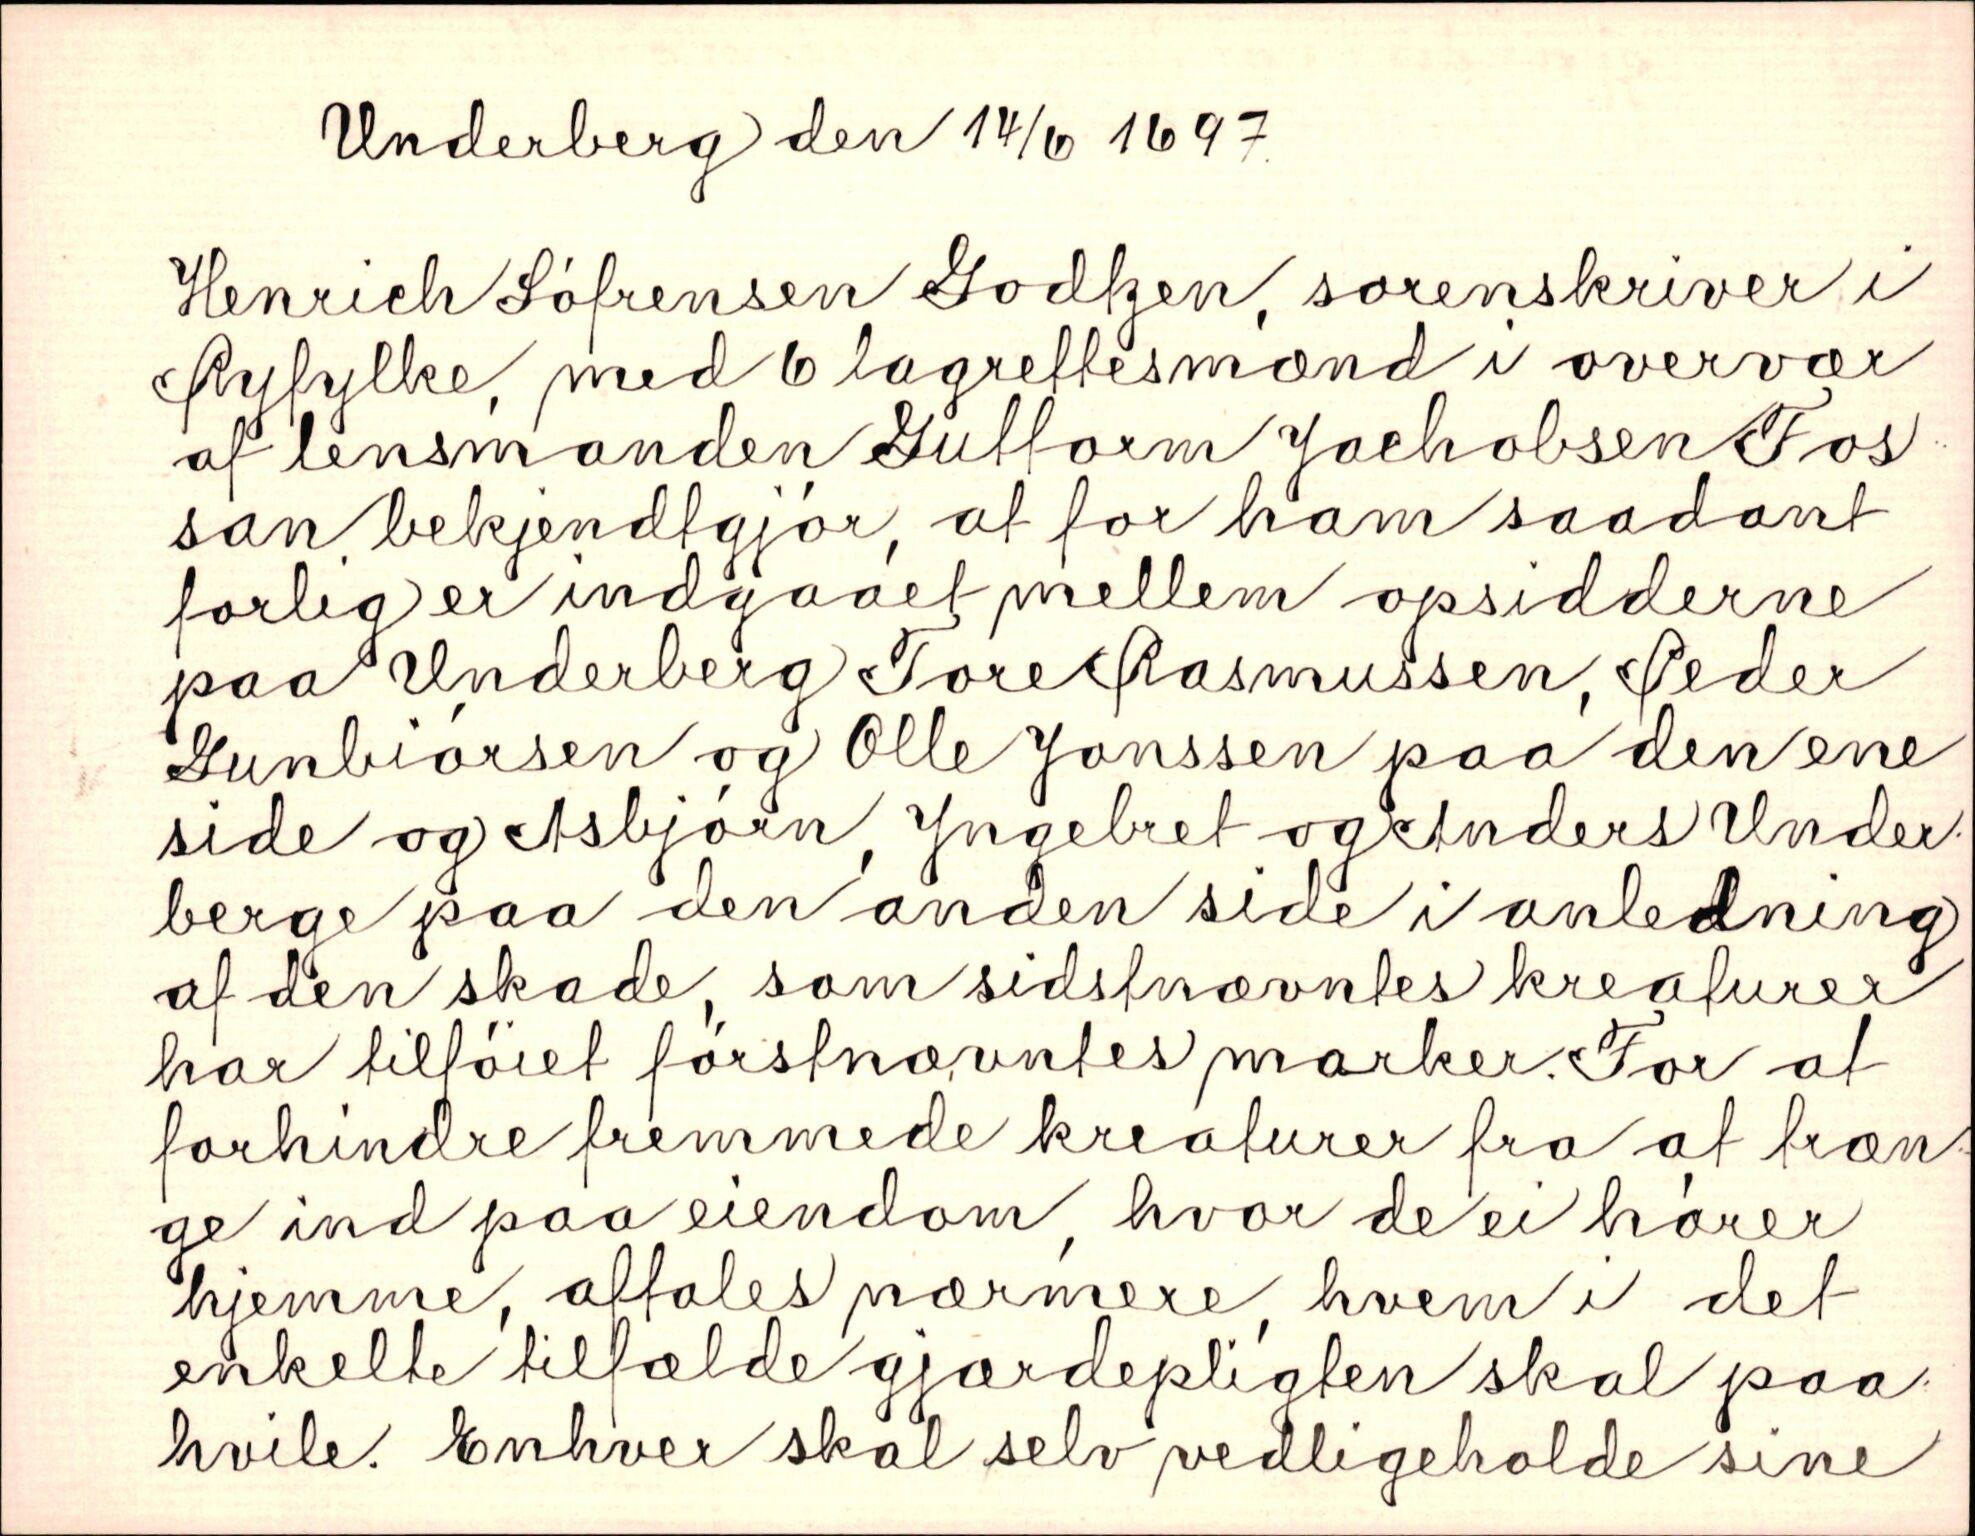 Underberg den 14/6 1697.
Henrich Söfrensen Godtzen, sorenskriver i
Ryfylke, med 6 lagrettesmænd i overvær
af lensmanden Guttorm Jachobsen Fos-
san, bekjendtgjör, at for ham saadant
forlig er indgaaet mellem opsidderne
paa Underberg Tore Rasmussen, Peder
Gunbiörsen og Olle Jonssen paa den ene
side og Asbjörn, Yngebret og Anders Under-
berge paa den anden side i anledning
af den skade, som sidstnævntes kreaturer
har tilföiet förstnævntes marker. For at
forhindre fremmede kreaturer fra at træn-
ge ind paa eiendom, hvor de ei hörer
hjemme, aftales nærmere, hvem i det
enkelte tilfælde gjærdepligten skal paa-
hvile. Enhver skal selv vedligeholde sine